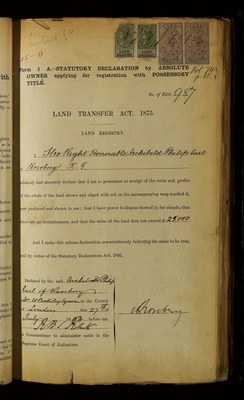 Form 1 A.—STATUTORY DECLARATION by ABSOLUTE
OWNER applying for registration with POSSESSORY
TITLE.
No. of Title 987
LAND TRANSFER ACT, 1875.
LAND REGISTRY.
I, The Right Honorable Archibald Philip Earl
of Rosebery K. G.
solemnly and sincerely declare that I am in possession or receipt of the rents and profits
of the whole of the land shown and edged with red on the accompanying map marked A,
now produced and shown to me; that I have power to dispose thereof in fee simple, that
there are no incumbrances, and that the value of the land does not exceed £
And I make this solemn declaration, conscientiously believing the same to be true,
and by virtue of the Statutory Declarations Act, 1835.
Declared by the said Archibald Philip
Earl of Rosebery
at in the County
of London this 27th
July before me,
Rosebery
a Commissioner to administer oaths in the
Supreme Court of Judicature.